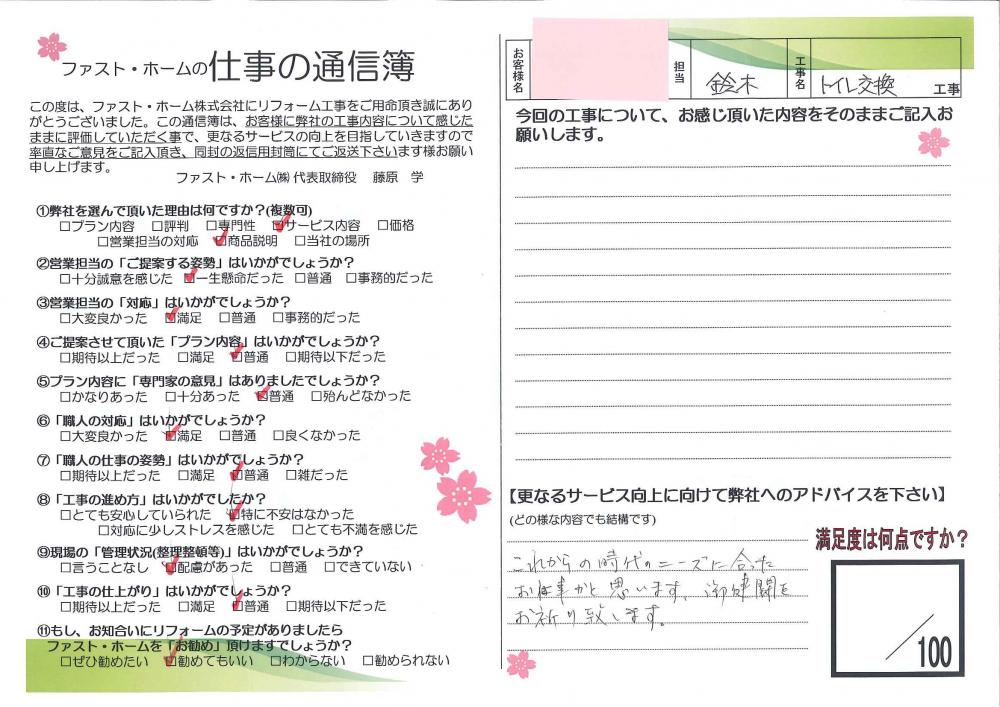 ファスト・ホームの仕事の通信簿
この度は、ファスト・ホーム株式会社にリフォーム工事をご用命頂き誠にあり
がとうございました。この通信簿は、お客様に弊社の工事内容について感じた
ままに評価していただく事で、更なるサービスの向上を目指していきますので
率直なご意見をご記入頂き、同封の返信用封筒にてご返送下さいます様お願い
申し上げます。
ファスト・ホーム㈱ 代表取締役 藤原 学
①弊社を選んで頂いた理由は何ですか?(複数可)
□プラン内容 □評判 □専門性 □サービス内容 □価格
□営業担当の対応 □商品説明 □当社の場所
②営業担当の「ご提案する姿勢」はいかがでしょうか?
□十分誠意を感じた □一生懸命だった □普通 □事務的だった
③営業担当の「対応」はいかがでしょうか?
□大変良かった □満足 □普通 □事務的だった
④ご提案させて頂いた「プラン内容」はいかがでしょうか?
□期待以上だった □満足 □普通 □期待以下だった
⑤プラン内容に「専門家の意見」はありましたでしょうか?
□かなりあった □十分あった □普通 □殆んどなかった
⑥「職人の対応」はいかがでしょうか?
□大変良かった □満足 □普通 □良くなかった
⑦「職人の仕事の姿勢」はいかがでしょうか?
□期待以上だった □満足 □普通 □雑だった
⑧「工事の進め方」はいかがでしたか?
□とても安心していられた □特に不安はなかった
□対応に少しストレスを感じた □とても不満を感じた
⑨現場の「管理状況(整理整頓等)」はいかがでしょうか?
□言うことなし □配慮があった □普通 □できていない
⑩「工事の仕上がり」はいかがでしょうか?
□期待以上だった □満足 □普通 □期待以下だった
⑪もし、お知合いにリフォームの予定がありましたら
ファスト・ホームを「お勧め」頂けますでしょうか?
□ぜひ勧めたい □勧めてもいい □わからない □勧められない
お客様名 担当 鈴木 工事名 トイレ交換 工事
今回の工事について、お感じ頂いた内容をそのままご記入お
願いします。
【更なるサービス向上に向けて弊社へのアドバイスを下さい】
(どの様な内容でも結構です)
これからの時代のニーズに合った
お仕事かと思います、御健闘を
お祈り致します。
満足度は何点ですか?
/100